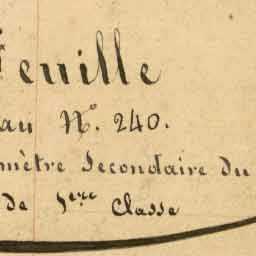 Feuille
au N° 240.
mètre Secondaire du
de 1ere Classe